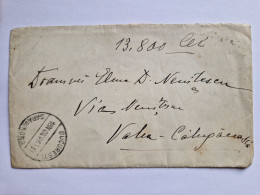 13.800 Lei
Doamnei Elena D. Nenițescu
Via Nenițescu
Valea - Călugărească
BUCUREȘTI